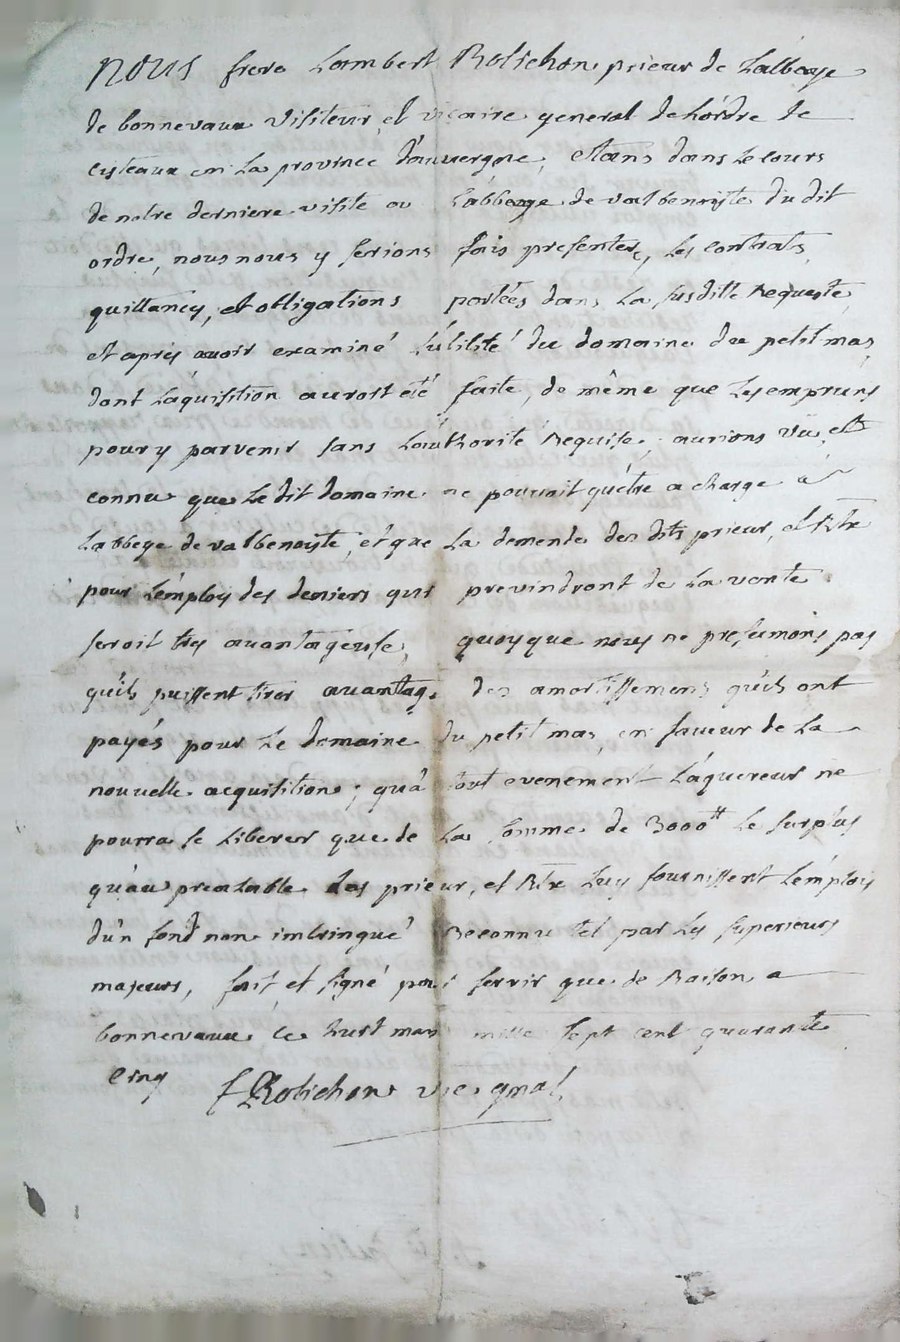 nous frere Lambert Rolichon prieur de Labbaye
de bonnevaux visiteur et vicaire general de hórdre de
cisteaux en La province dauvergne, etans dans Le cours
de notre derniere visite au Labbaye de valbenoyte du dit
ordre, nous nous y serions fais presenter, Les contrats,
quittancey, et obligations portées dans La susditte Requeste,
et aprés avoir examiné Lutilité du domaine du petit mas,
dont Láquisition auroit été faite, de même que Les empruns
pour y parvenir sans Lauthorité Requise, aurions vü, et
connu que Le dit domaine ne pouvoit quétre a charge a
Labbeye de valbenoyte, et que La demende des dits prieur, et Rlx
pour Lémploy des deniers qui previndront de La vente
seroit trés avantageuse, quoyque nous ne presumons pas
quils puissent tirer avantage des amortissemens quils ont
payés pour Le domaine du petit mas, en faveur de La
nouvelle acquisition; quá tout evenement Láquereur ne
pourra se Liberer que de La somme de 3000tt Le surplus
quau prealable Les prieur, et Rlx Luy fournissent Lémploy
dún fond non imbringué Reconnu tel par Les superieurs
majeurs, fait et signé pour servir que de Raison a
bonnevaux ce huit mars mille sept cent quarante
cinq f Rolichon vic gnal